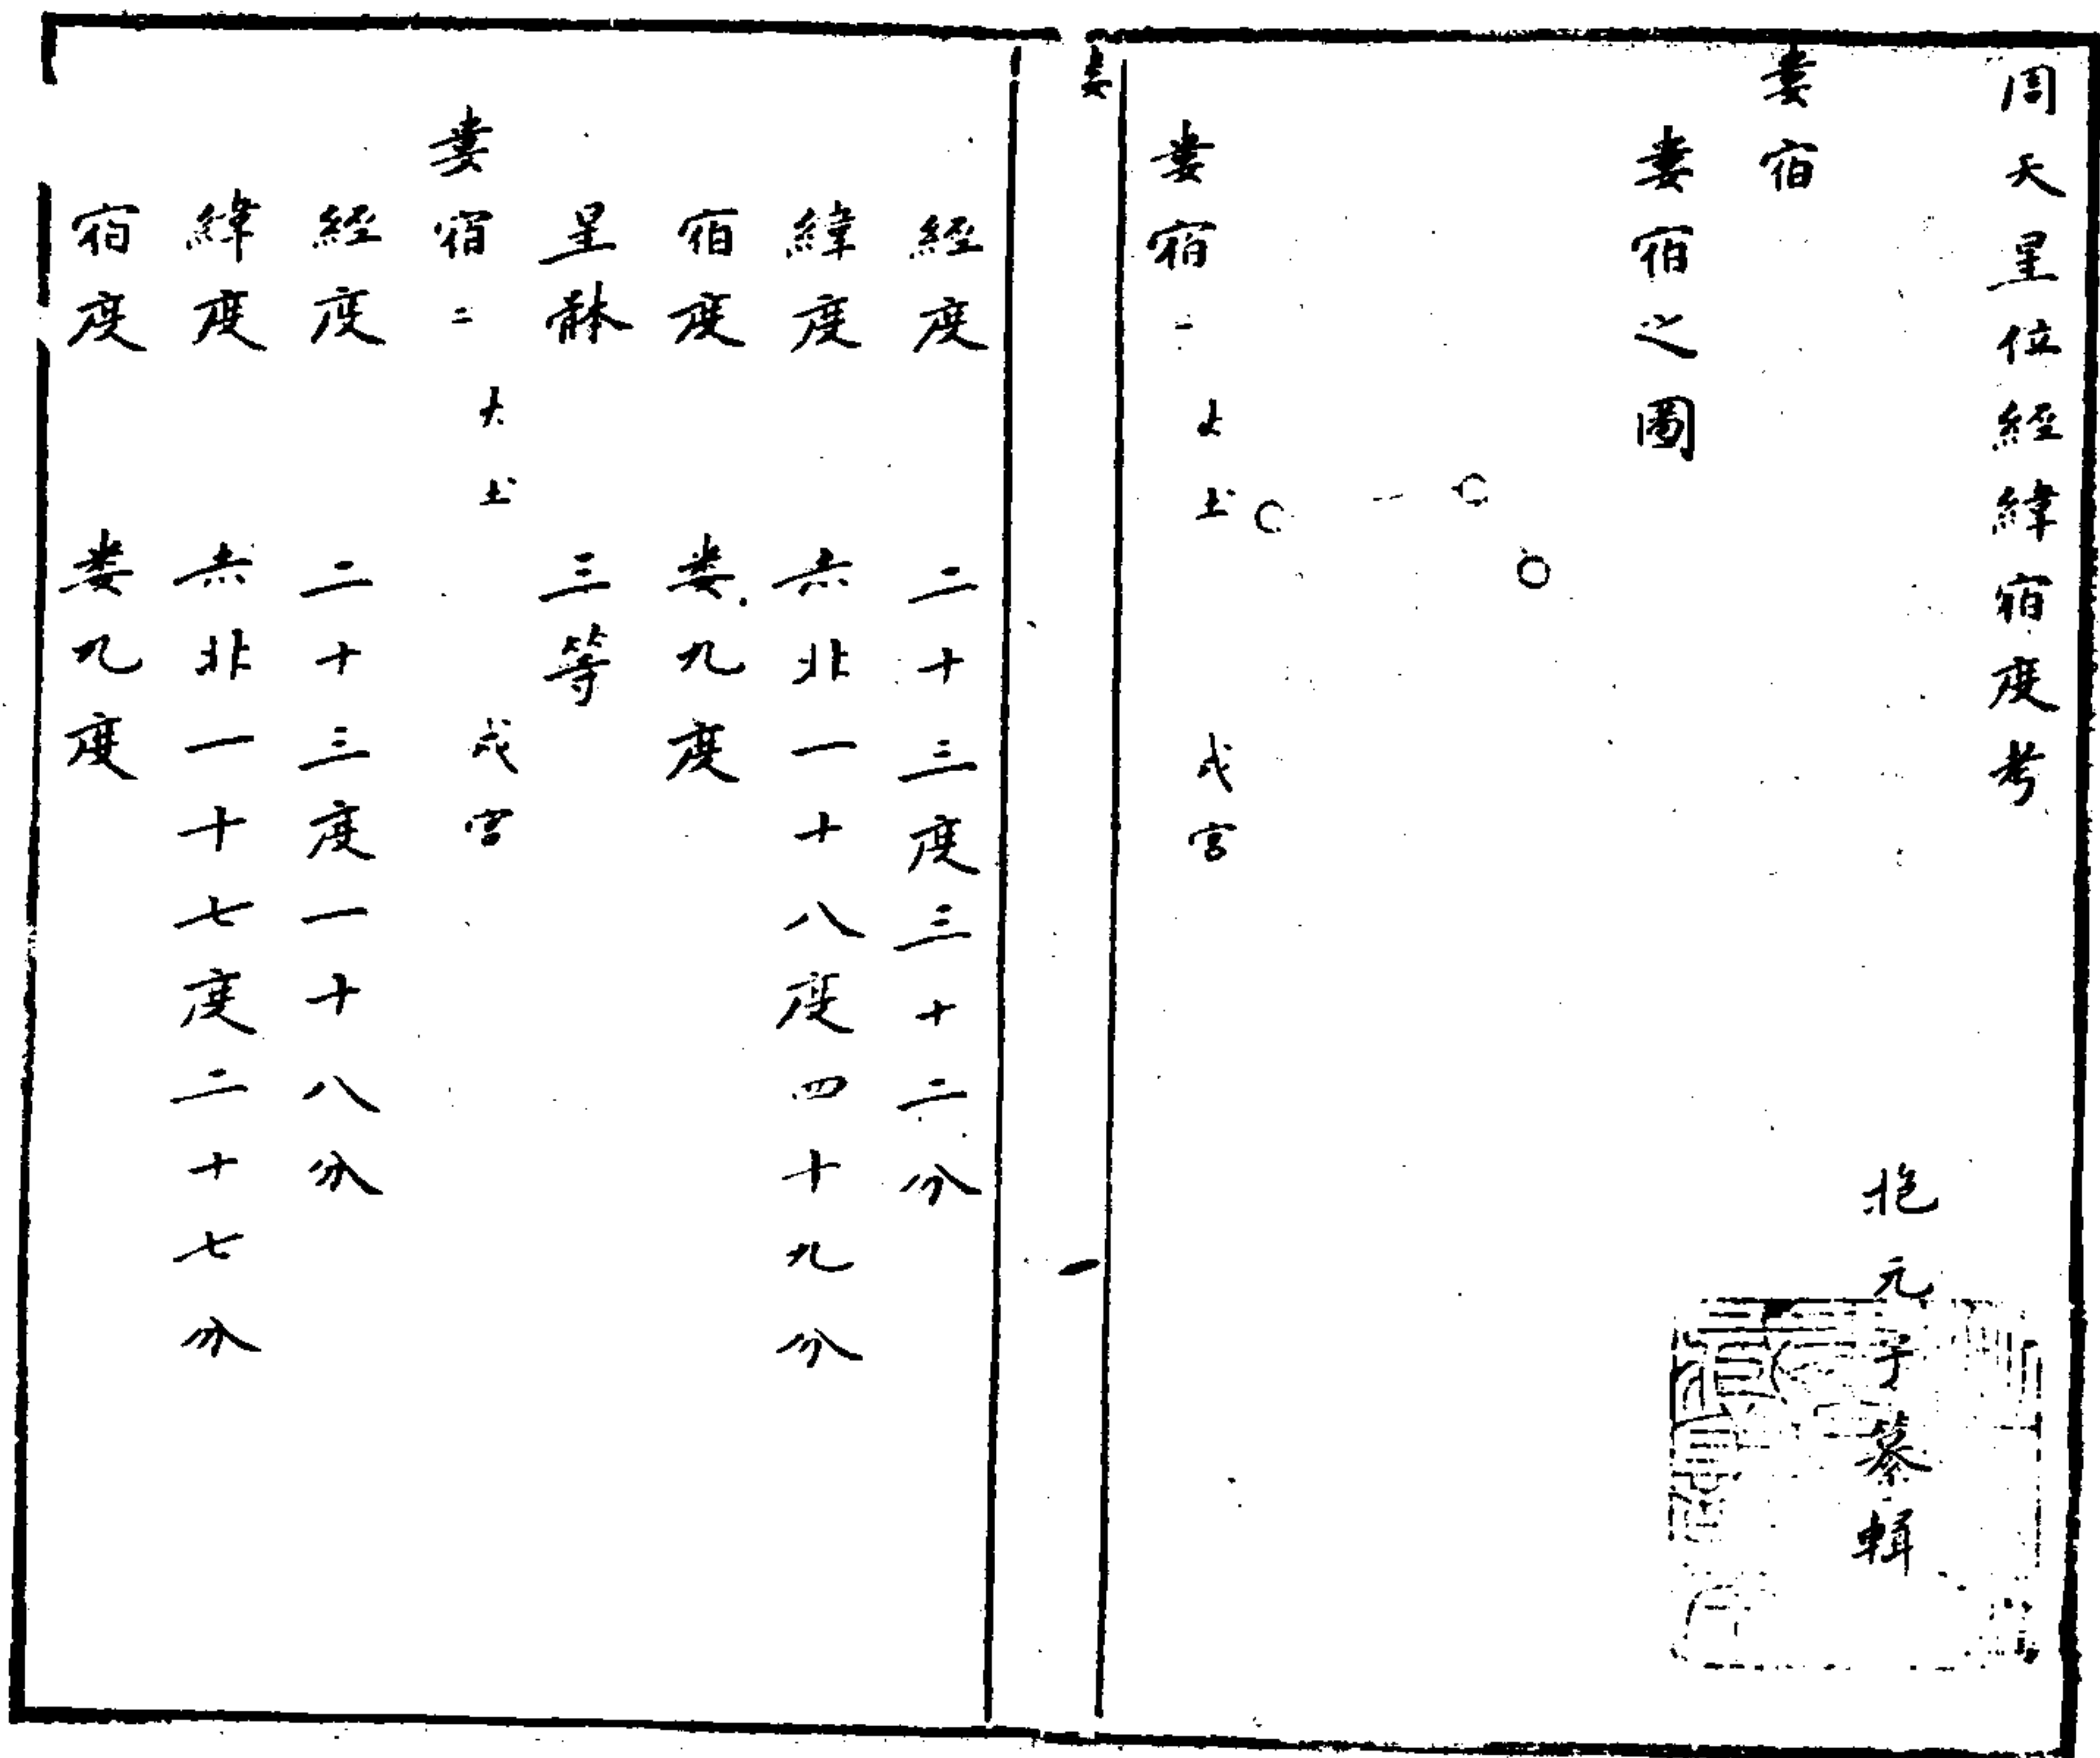 周天星位經緯宿度考
抱元子纂輯
婁宿
婁宿之圖
婁宿一 土 戌宮
婁 一
經度 二十三度三十二分
緯度 赤北一十八度四十九分
宿度 婁九度
星骵 三等
婁宿二 土 戌宮
經度 二十三度一十八分
緯度 赤北一十七度二十七分
宿度 婁九度